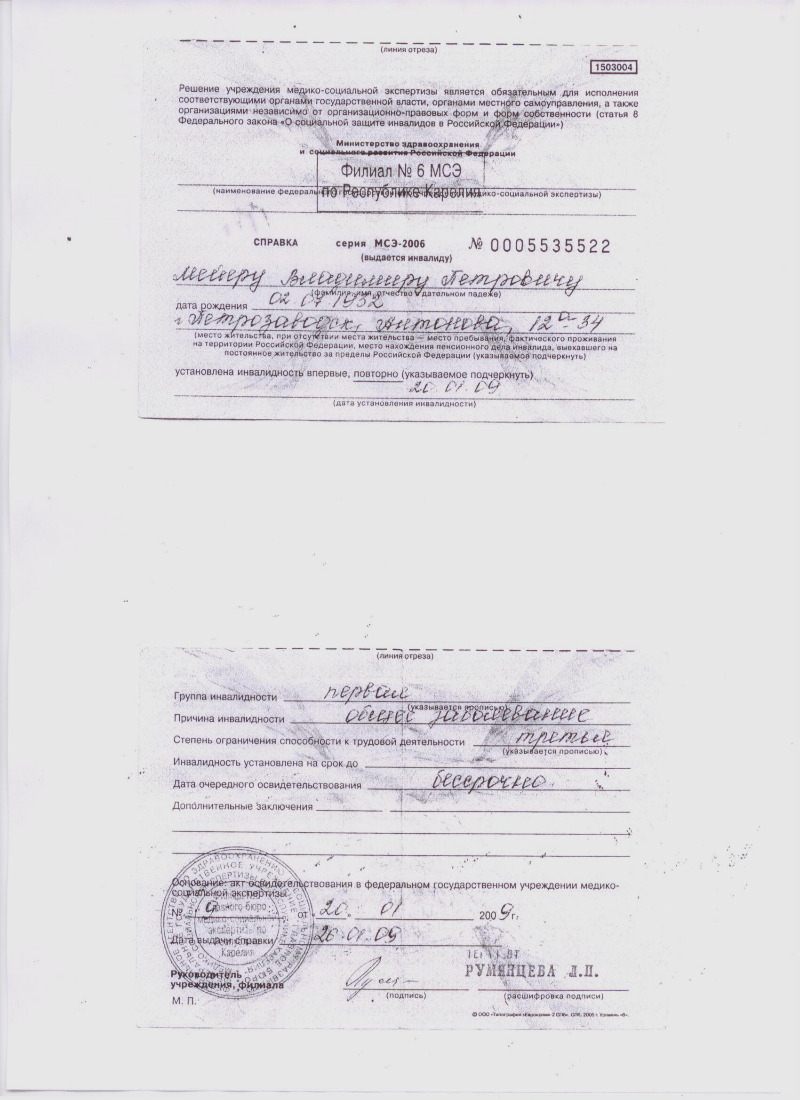 (линия отреза)
1503004
Решение учреждения медико-социальной экспертизы является обязательным для исполнения
соответствующими органами государственной власти, органами местного самоуправления, а также
организациями независимо от организационно-правовых форм и форм собственности (статья 8
Федерального закона «О социальной защите инвалидов в Российской Федерации»)
Министерство здравоохранения
и социального развития Российской Федерации
Филиал № 6 МСЭ
по Республике Карелия
(наименование федерального медико-социальной экспертизы)
СПРАВКА серия МСЭ-2006 № 0005535522
(выдается инвалиду)
Мейеру Владимиру Петровичу
(фамилия, имя, отчество в дательном падеже)
дата рождения 02 07 1932
г Петрозаводск, Антонова, 12а-34
(место жительства, при отсутствии места жительства — место пребывания, фактического проживания
на территории Российской Федерации, место нахождения пенсионного дела инвалида, выехавшего на
постоянное жительство за пределы Российской Федерации (указываемое подчеркнуть)
установлена инвалидность впервые, повторно (указываемое подчеркнуть)
20.01.09
(дата установления инвалидности)
(линия отреза)
Группа инвалидности первая
(указывается прописью)
Причина инвалидности общее заболевание
Степень ограничения способности к трудовой деятельности третья
(указывается прописью)
Инвалидность установлена на срок до
Дата очередного освидетельствования бессрочно
Дополнительные заключения
Основание: акт освидетельствования в федеральном государственном учреждении медико-
социальной экспертизы
№ 9 от 20 01 2009 г.
Дата выдачи справки 20.01.09
Руководитель
учреждения, филиала
РУМЯНЦЕВА Л.П.
(подпись) (расшифровка подписи)
М. П.